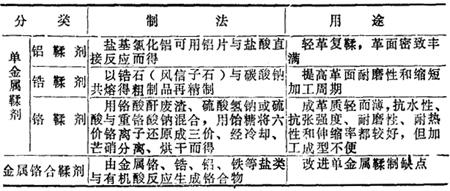 分 类 制 法 用 途
单金属鞣剂
铝鞣剂
盐基氯化铝可用铝片与盐酸直
接反应而得
轻革复鞣，革面密致丰
满
锆鞣剂
以锆石（风信子石）与碳酸钠
共熔得粗制品再精制
提高革面耐磨性和缩短
加工周期
铬鞣剂
用铬酸酐废渣、硫酸氢钠或硫
酸与重铬酸钠混合，用饴糖将六
价铬离子还原成三价、经冷却、
芒硝分离、烘干而得
成革质轻而薄，抗水性、
抗张强度、耐磨性、耐热
性和伸缩率都较好，但加
工成型不便
金属铬合鞣剂
由金属铬、锆、铝、铁等盐类
与有机酸反应生成铬合物
改进单金属鞣制缺点